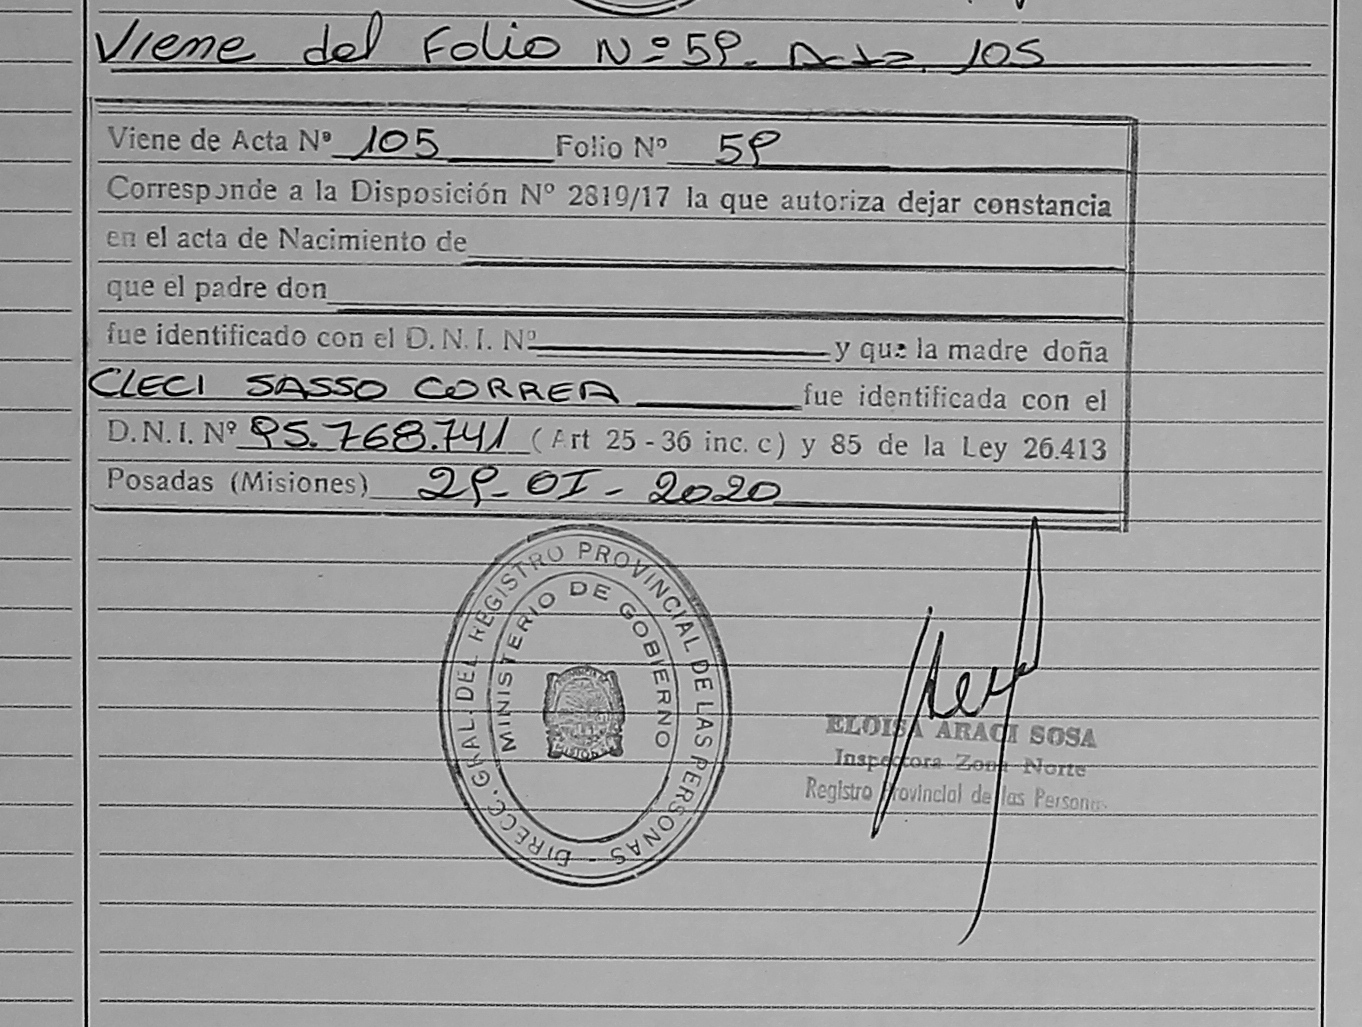 Viene del Folio Nº 59. Acta 105
Viene de Acta Nº 105 Folio Nº 59
Corresponde a la Disposición Nº 2819/17 la que autoriza dejar constancia
en el acta de Nacimiento de
que el padre don
fue identificado con el D.N.I. Nº y que la madre doña
CLECI SASSO CORREA fue identificada con el
D.N.I. Nº 95.768.741 (Art 25 - 36 inc. c) y 85 de la Ley 26.413
Posadas (Misiones) 29-01-2020
DIRECC. GRAL. DEL REGISTRO PROVINCIAL DE LAS PERSONAS -
MINISTERIO DE GOBIERNO
MISIONES
ELOISA ARACI SOSA
Inspectora Zona Norte
Registro Provincial de las Personas